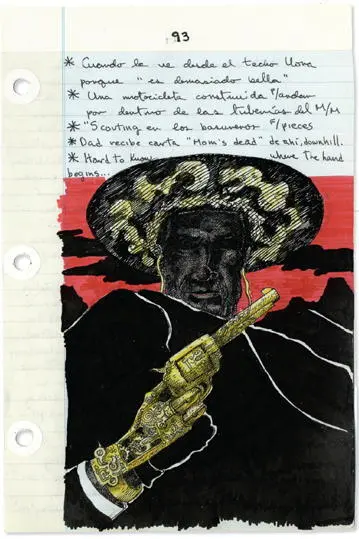 93
* Cuando la ve desde el techo llora
porque "es demasiado bella"
* Una motocicleta construida p/andar
por dentro de las tuberías del M/M
* "Scouting en los basureros f/pieces
* Dad recibe carta "Mom's dead" de ahí, downhill.
* Hard to know where the hand
begins...